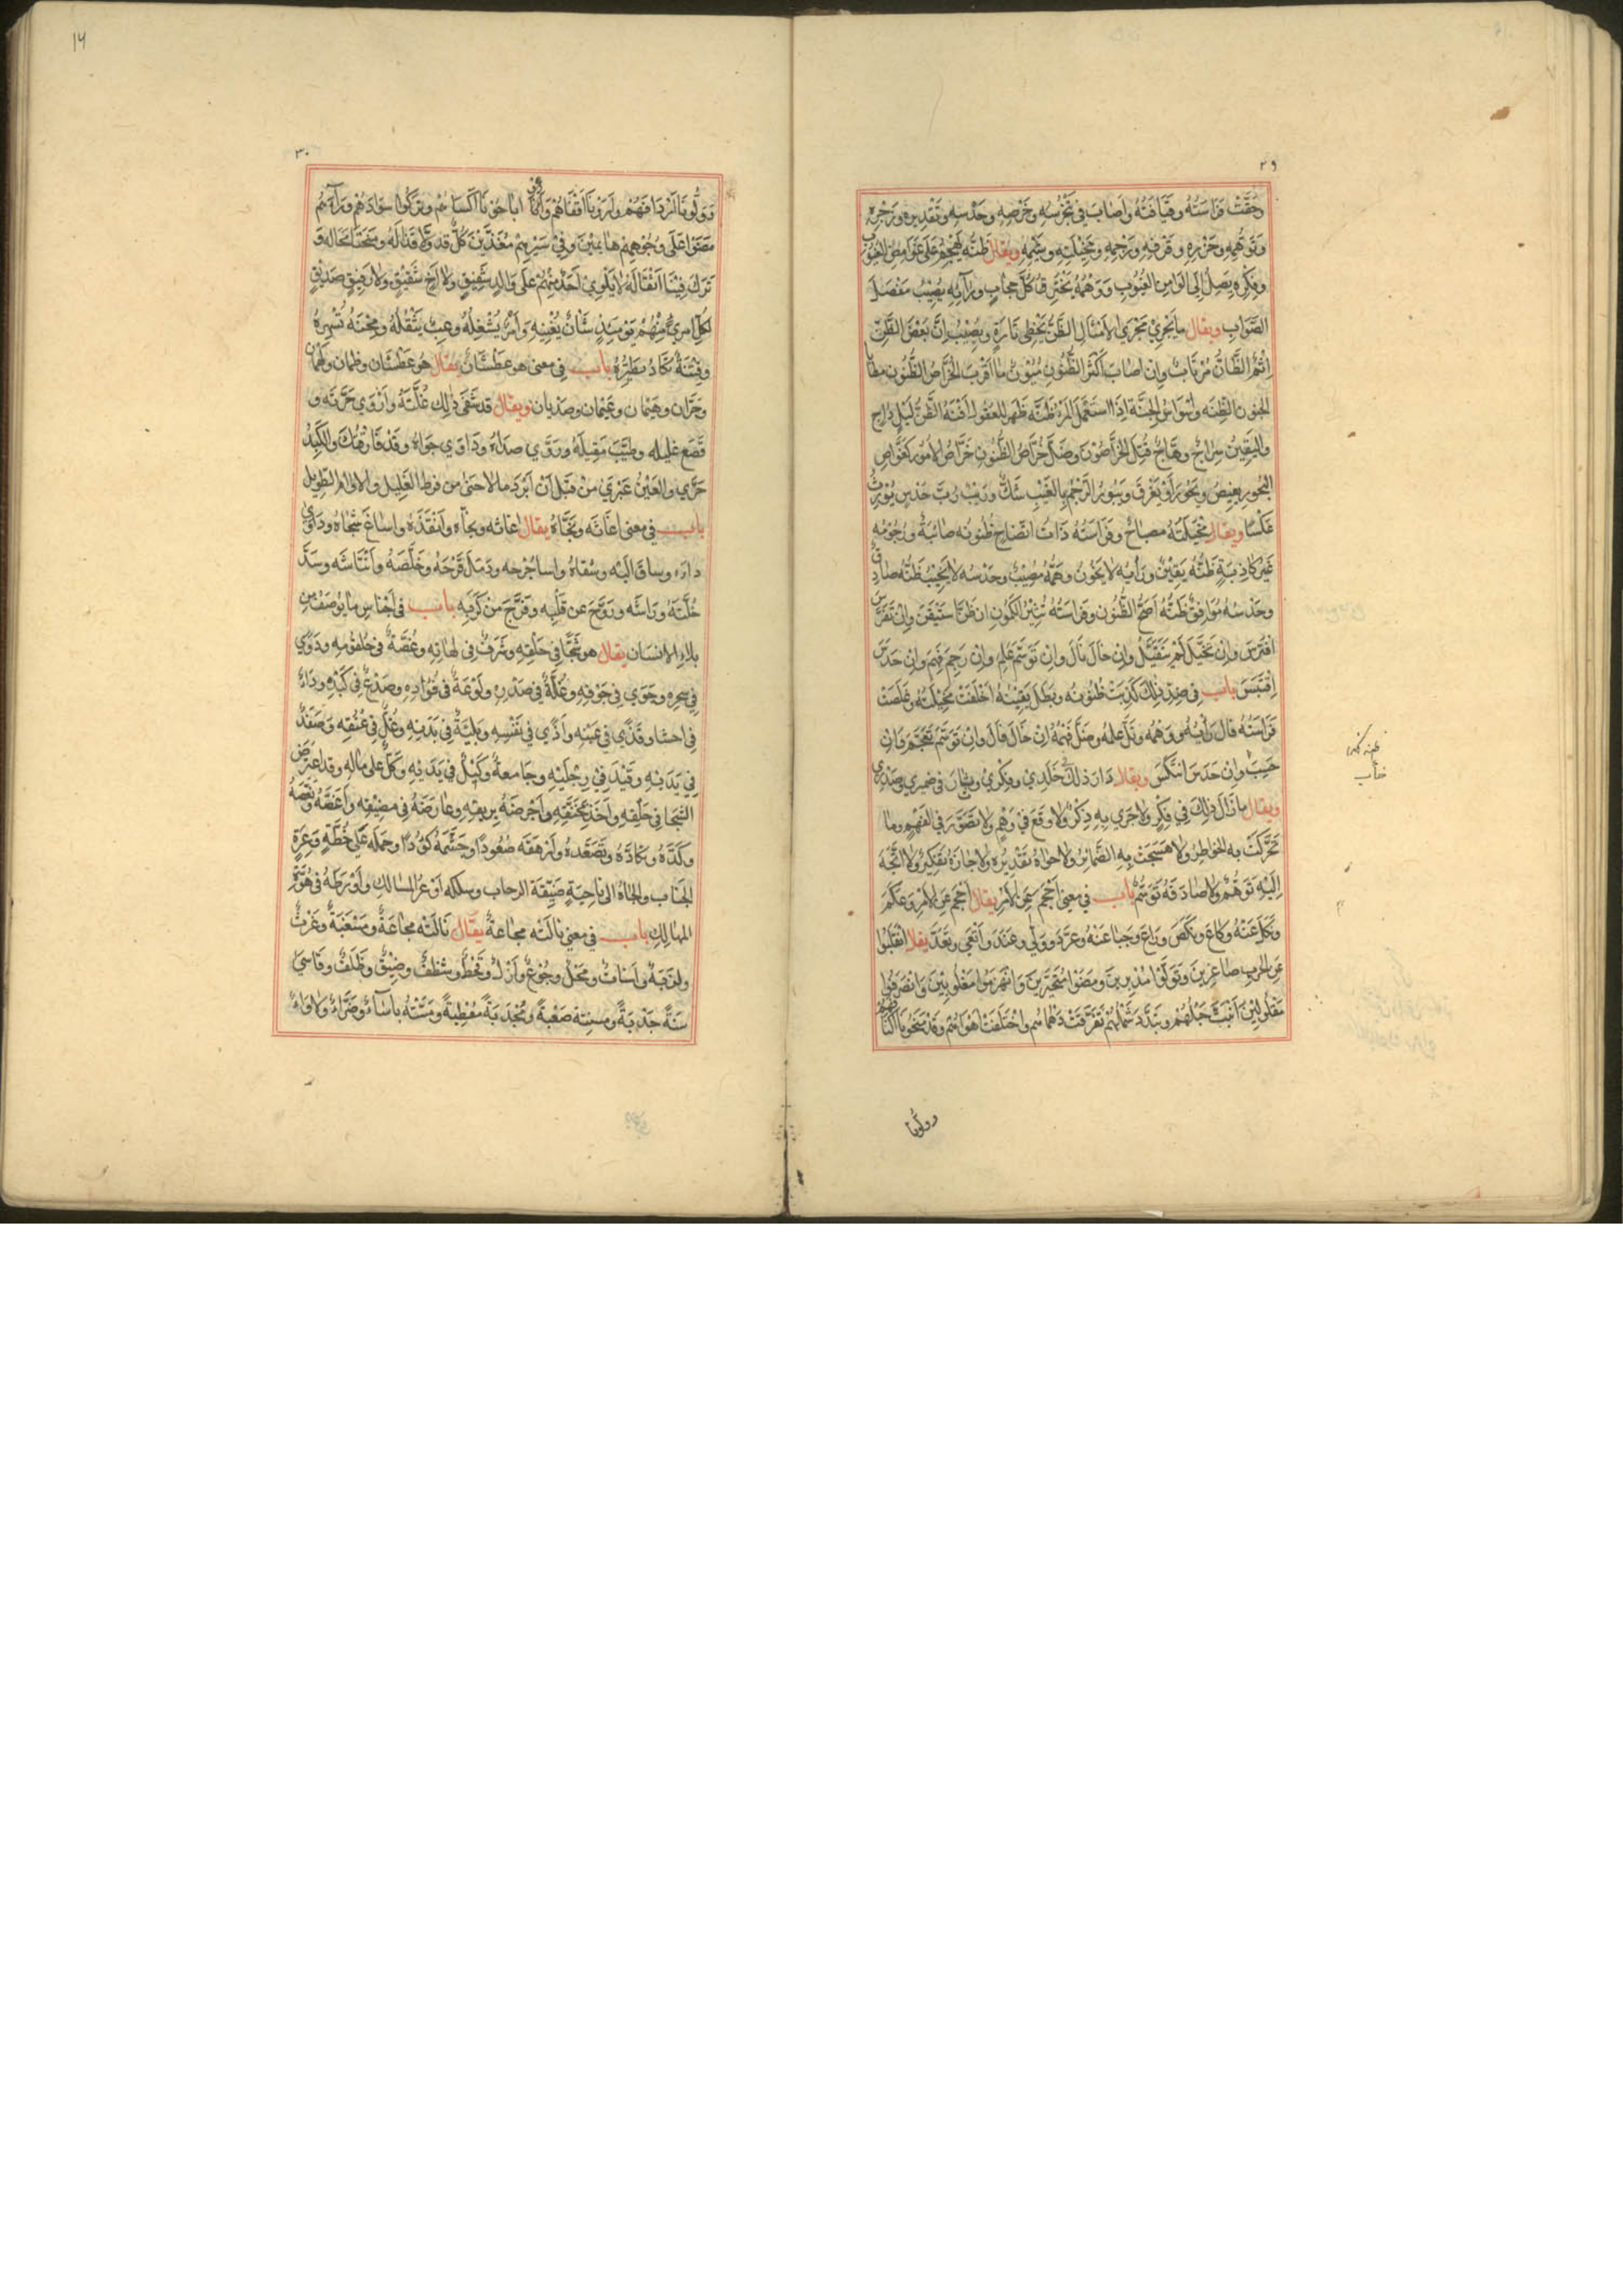 ٢٩
حُقَّتْ فَرَاسَتُهُ وقيَافَتُهُ واَصَابَ فِي تَخَرُّسِهِ وخَرْصِهِ وحَدْسِهِ وتَقْدِيرِهِ وزَجْرِهِ
وتَوَهُّمِهِ وحَزْرِهِ وقَرْفِهِ ورَجْمِهِ ومَخِيْلَتِهِ وشَيْمِهِ ويقال ظَنُّهُ يَهْجُمُ عَلَى غَوَامِضِ الغيُوْبِ
وفِكْرُه يَصِلُ اِلَى لوَامِنِ الغُيُوبِ وَوَهْمُهُ يَخْتَرِقُ كُلَّ حِجَابٍ ورَأيُهُ يُصِيْبُ مَفْصَلَ
الصَّوَابِ ويقال مايَجْرِيْ مَجْرَى الاَمْثَالِ الظَّنُّ يُخْطِى تَارَةً ويُصِيْبُ اِنَّ بَعْضَ الظَّنِّ
اِثْمٌ الظَّانُّ مُرْتَابٌ وان اصَابَ اَكْثَرُ الظُّنُونِ مُيُوْنٌ ما اَقْرَبَ الخَرَّاصُ الظُّنُون مطايا
الجنون الظِنَّه اِذَا اسْتَعْمَلَ المَرْءُ ظَنَّه ظَهَرَ للعقول اَفْنُهُ الظَّنُّ لَيْلٍ دَاجٍ
واليَقِيْنُ سِرَاجٌ وهَّاجٌ قُتِلَ الخَرَّاصُوْنَ وضَلَّ خُرَّاصُ الظُّنُونِ خَرَّاصُ الاُمُور كَغَوَّاصِ
البُحُورِ يغيصُ ويَحُورُ اَوْ يَغْرَقُ ويَبُورُ الرَّجْمُ بِالغَيْبِ شَكٌّ ورَيْبٌ رُبَّ حَدْسٍ يُوْرِثُ
عَكْسًا ويقال مَخِيْلَتُهُ مصبَاحٌ وفَرَاسَتُهُ ذَاتُ اتِّضَاحٍ ظُنُونُه صَائبَةٌ ورُجُوْمُهُ
غَيْرُ كَاذِبَةٍ ظَنُّه يَقِيْنٌ ورَأيُه لا يَخُوْنُ وهَمُّهُ مُصِيْبٌ وحَدْسُه لا يَخِيْبُ ظَنُّهُ صَادِقٌ
وحَدْسُهُ مُوَافِقٌ ظَنُّهُ اَصَحُّ الظُّنُونِ وفَرَاسَتُهُ تُثِيْرُ الكُمُونِ ان ظَنَّ اسْتَيْقَنَ وانْ تَفَرَّسَ
افْتَرَسَ وان تَخَيَّلَ لَمْ يَتَقَيَّلْ وان خَالَ نَالَ وان تَوَسَّمَ عَلِمَ وان رَجِمَ فَهِمَ وان حَدَسَ
اِقْتَبَسَ باب فى ضِدّ ذٰلِكَ كَذبَتْ ظُنُونُه وبَطَلَ يَقِيْنُهُ اَخْلَفَتْ مَخِيْلَتُهُ وقَلَصَتْ
فَرَاسَتُهُ فَالَ رَأيُهُ ووَهْمُه وزَلَّ عِلمُه وضَلَّ فَهْمُهُ اِنْ خَالَ فَالَ وانْ تَوَسَّمَ تَعَجَّمَ وَان
حَسِبَ وان حَدَسَ انتَكَسَ ويقال دَارَ ذلكَ فى خَلَدِي وفِكْرِيْ وجَالَ فى ضميرى وصَدْرِى
ويقال مازَالَ ذٰلِكَ فِى فِكْرٍ ولاجَرَى بِهِ ذِكْرٌ ولا وقَعَ فِيْ وَهْمٍ ولا تَصَوَّرَ فى الفَهْمِ وما
تَحَرَّكَتْ به الخواطِرُ ولا هَجَسَتْ بِهِ الضَّمَائِرُ ولا حوَاهُ تَقْدِيْرٌ ولا جَازَهُ تَفْكِيْرٌ ولا اتَّجَهَ
اِلَيْهِ تَوَهُّمٌ ولا صَادَفَهُ تَوَسُّمٌ باب فى مَعنى اَحْجَمَ عَنِ الاَمْرِ يقال اَحْجَمَ عَنِ الاَمْرِ وعَكَمَ
ونَكَلَ عَنْهُ وكَاعَ ونَكَصَ ورَاعَ وجَبَا عَنْهُ وعَرَّدَ ووَلَّى وعَنَدَ وانْتَحى وتَعَدَّ يقال انْقَلَبُوا
عَنِ الحَربِ صَاغِرِينَ وتَوَلَّوْا مُدْبِرِينَ ومَضَوْا مُتَحَيِّرِيْنَ وَانْهَزَمُوا مَغْلُوبِيْنَ وَانْصَرَفُوا
مَفْلُولِيْنَ اَنْبَتَّ حَبْلُهُمْ وتَبَدَّدَ شَمْلُهُمْ تَفَرَّقَتْ دَهْمَاؤهُمْ واخْتَلَفَتْ اَهْوَاءهُمْ وقَدْ مَنَحُونَا اَكْتَافَهُمْ
وولّونا
١٦
٣٠
وَوَلَّونَا اَرْدَافَهُمْ واَرَوْنَا اَقْفَاهُمْ وَاَبَاحُوْنَا اَكْسَاءَهُمْ وتَرَكُوا سَوَادَهُم ورَاءَهُمْ
مَضَوْا عَلَى وُجُوْهِهِمْ هَائِمِيْنَ وَفِي سَيْرِهِمْ مُغَذِّيْنَ كُلٌّ قد وَلاَّ قذالَهُ ومَنَحَنَا مَجَالَه وَ
تَرَكَ فِيْنَا اَثْقَالَهُ لا يَلْوِيْ اَحَدٌ مِنْهُمْ عَلَى وَالِدٍ شَفِيْقٍ ولا اَخٍ شَقِيْقٍ ولا رَفِيْقٍ صَدِيْقٍ
لكُلِّ امرِئٍ مِنْهُمْ يَوْمَئِذٍ شَانٌ يُغْنِيْهِ وَاَمْرٌ يُشْغِلُهُ وعِبْءٌ يَثْقُلُهُ ومِحْنَةٌ تُسْهِرُهُ
وفِتْنَةٌ تَكَادُ تُطَيِّرُهُ باب فى معنى هو عَطْشَانٌ يقال هُوَ عَطْشَان وظمان ولَهْثَان
وحَرَّان وهَيْمَان وغَيْمَان وصَدْيَان ويقال قد شَفَى ذٰلِكَ غُلَّتَهُ وَاَرْوَى حَرَّتَه و
قَصَعَ غليله وطَيَّبَ مَقِيلَهُ ورَوَّى صَدَاءَهُ ودَاوَى جَوَاهُ وقَدْ فَارَقْتُكَ والكَبِدُ
حَرَّى والعَيْنُ عَبْرَى مِنْ قَبْلِ اَنْ اَبْرَدَ مالاحَى من فرط الغَلِيل والاُوَامِ الطَّوِيل
باب فى معنى اَغَاثَه ونَجَّاهُ يقال اَغَاثه ونجَّاه وَاَنْقَذَهُ واسَاغَ شَجَاهُ ودَاوَى
داءَه وساق اليْه وسُقَاهُ واسَا جُرْحَه ودَمَلَ قَرْحَهُ وخَلَّصَهُ وَانْتَاشَه وسَدَّ
خُلَّتَهُ ورَاشَه وروَّحَ عن قَلْبِه وفَرَّجَ مِنْ كَرْبِهِ باب فى اَجْنَاسِ مايُوصَفُ من
بلاءِ الانسَانِ يقال هو شَجًا فى حَلْقِهِ وشَرَقٌ فى لهَاتِه وغُصَّةٌ فى حُلقُومِه ودَوًى
فِي سِحْرِهِ وجَوًى فى جَوْفِهِ وغُلَّةٌ فى صَدْرِهِ ولَوْعَةٌ فى فُؤَادِه وصَدْعٌ فى كَبْدِهِ ودَاءٌ
فى احشَاه وقَذًى فى عَيْنِه واَذًى فى نَفْسِهِ وبَلِيَّةٌ فِى بَدَنِهِ وغُلٌّ فِى عُنُقِه وَصَفَدٌ
فِي يَدَيْهِ وقَيْدٌ فِي رِجْلَيْهِ وجَامعةٌ وكَبْلٌ فِي يَدَيْهِ وكَلٌّ عَلى مالِهِ وقد اعترَضَ
الشَّجَا فى حَلْقِهِ واَخَذَ بمُخَنَّقِهِ واَجْرضَهُ بِرِيقِهِ وعَارَضَهُ فى مَضِيْقِه واَغَصَّهُ ونَغَّصَهُ
وكَدَّهُ وكَادَّهُ وتَصَعَّدَهُ واَرْهَقَه صُعُودًا وجَشَّمَهُ كَؤُدًا وحمَلَه عَلَى خُطَّةٍ وَعِرَةِ
الجَنَاب والجَاهُ الى نَاحِيَةٍ ضَيِّقَة الرحاب وسَلَكَه اَوْعَرَ المسَالك وَاَوْرَطَهُ فى هُوَّةِ
المهَالك باب فى معنى نالَتْه مجاعةٌ يقَال نَالَتْه مجَاعَةٌ ومَسْغَبَةٌ وغَرْثٌ
ولَزْبَةٌ واَسْنَاتٌ ومَحْلٌ وجُوْعٌ واَزْلٌ وقَحْطٌ وشَظَفٌ وضِيْقٌ وظَلَفٌ وقَاسَى
سَنَةً جَدْبَةً صَعْبَةً ومُجْدَبَةً مقْحِطَةً ومَسَّتْهُ بأسَاءٌ وضَرَّاءُ ولاْوَاءُ